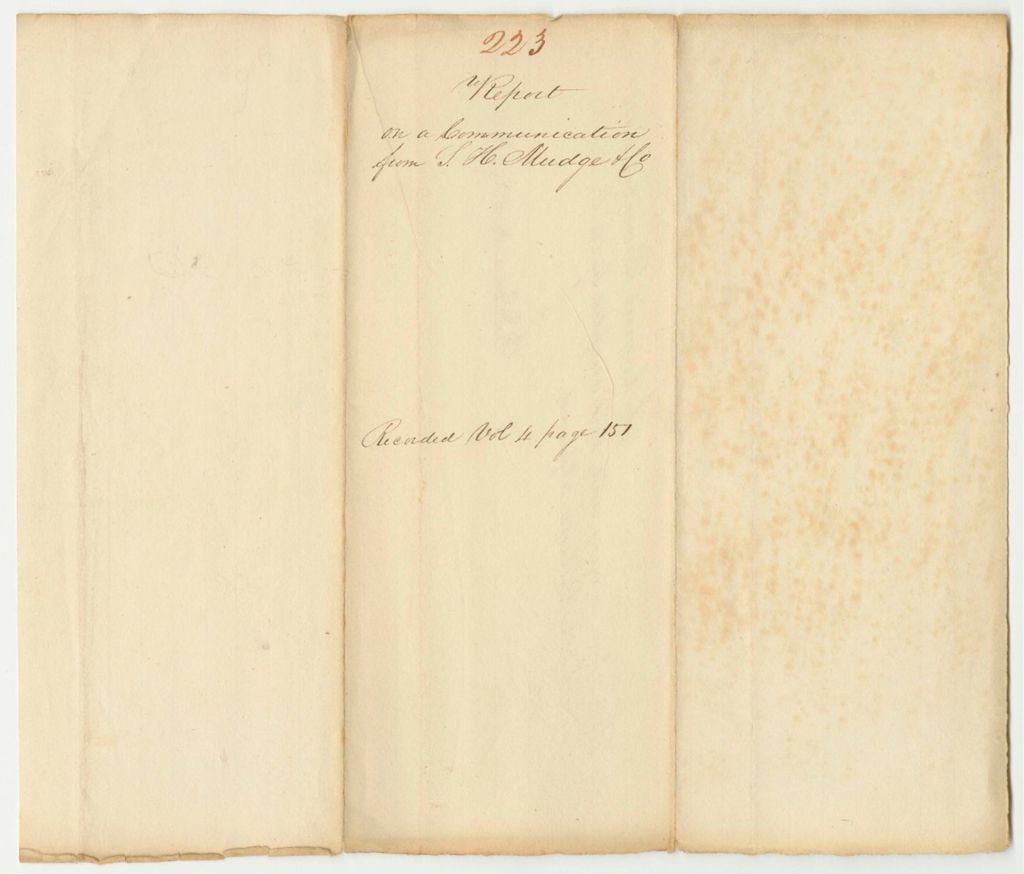 223
Report
on a Communication
from S. H. Mudge & Co
Recorded Vol 4 page 151